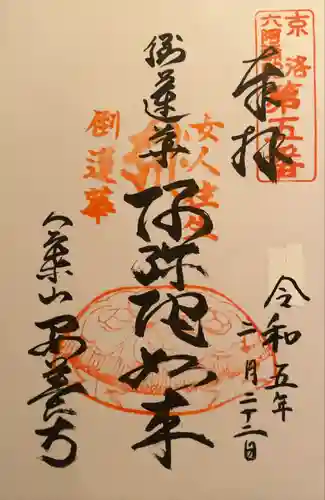 京洛
六阿弥陀
第五番
奉拝
令和五年
二月二十二日
女人往生
倒蓮華
阿弥陀如来
倒蓮華
八葉山 安養寺